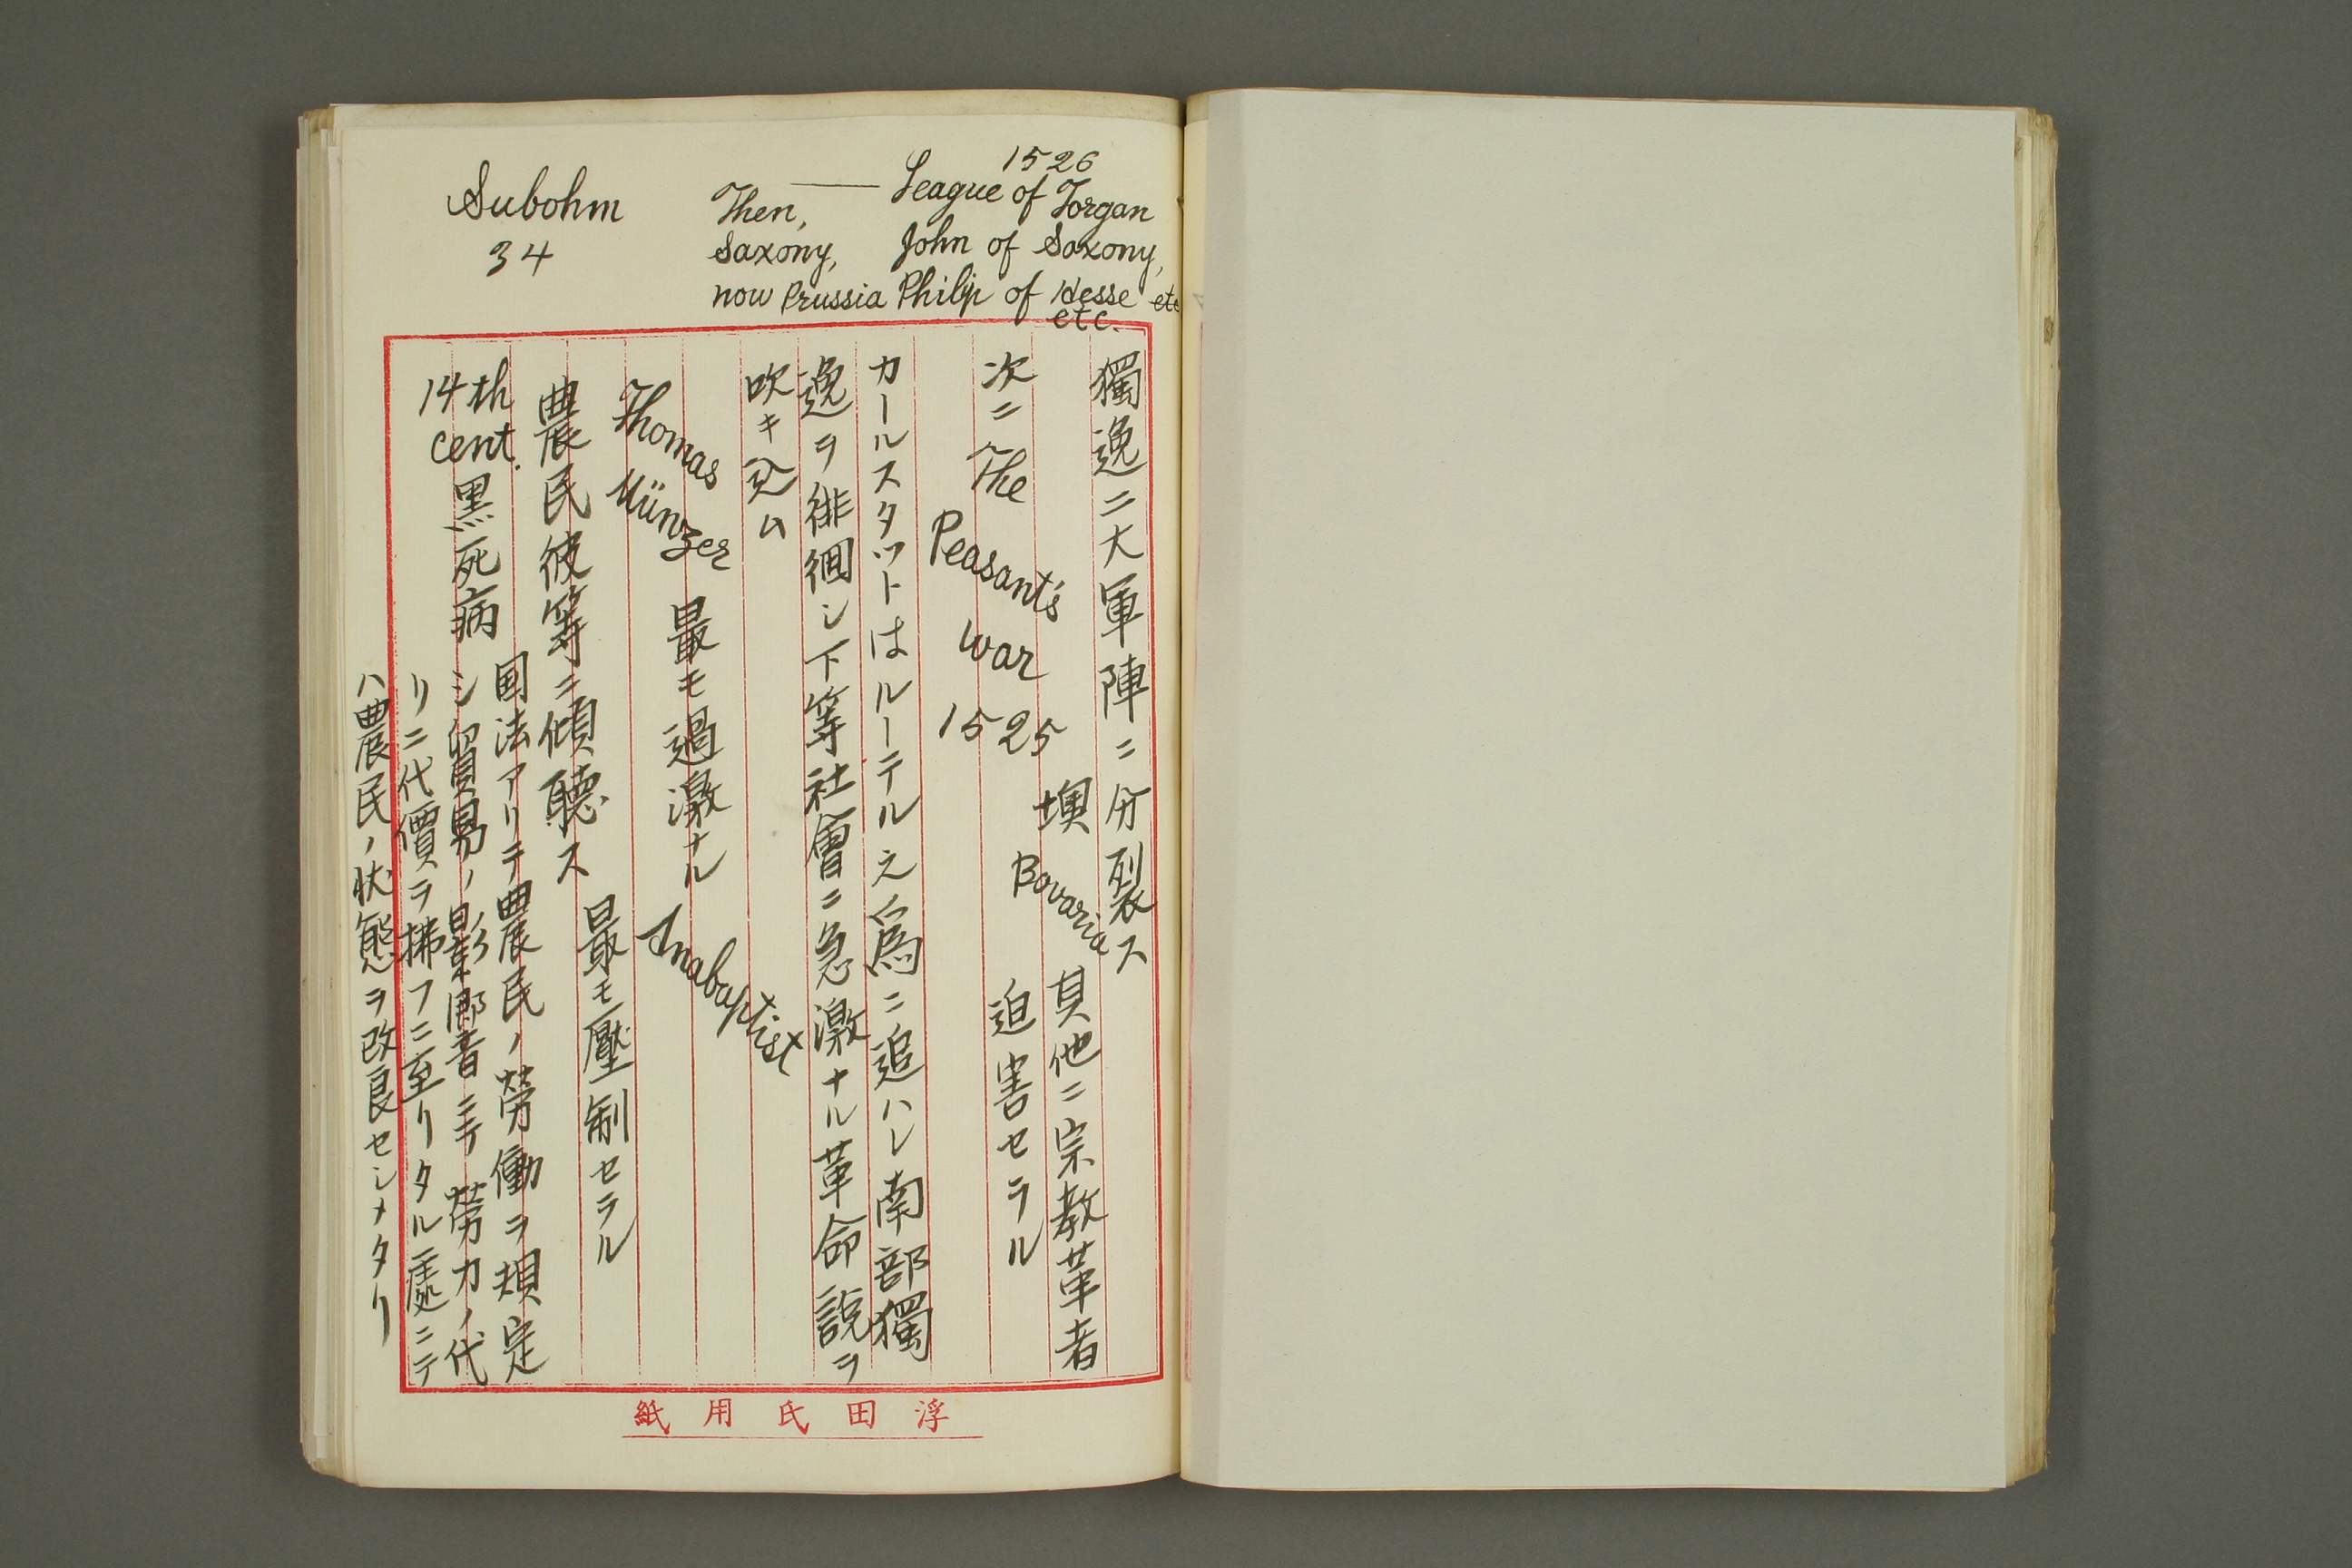 1526
League of Torgan
John of Saxony,
Philip of Hesse etc
etc.
Then,
Saxony,
now Prussia
Subohm
34
獨逸二大軍陣ニ分裂ス
墺 Bavaria 其他ニ宗教革者
迫害セラル
次ニ The Peasant's war 1525
カールスタットはルーテル之爲ニ追ハレ南部獨
逸ヲ徘徊シ下等社會ニ急激ナル革命説ヲ
吹キ込ム
Thomas Münzer 最モ過激ナル Anabaptist
農民彼等ニ傾聽ス 最モ壓制セラル
14th cent. 黒死病
国法アリテ農民ノ勞働ヲ規定
シ貿易ノ影響ニテ勞力ノ代
リニ代價ヲ拂フニ至リタル處ニテ
ハ農民ノ状態ヲ改良セシメタリ
浮田氏用紙